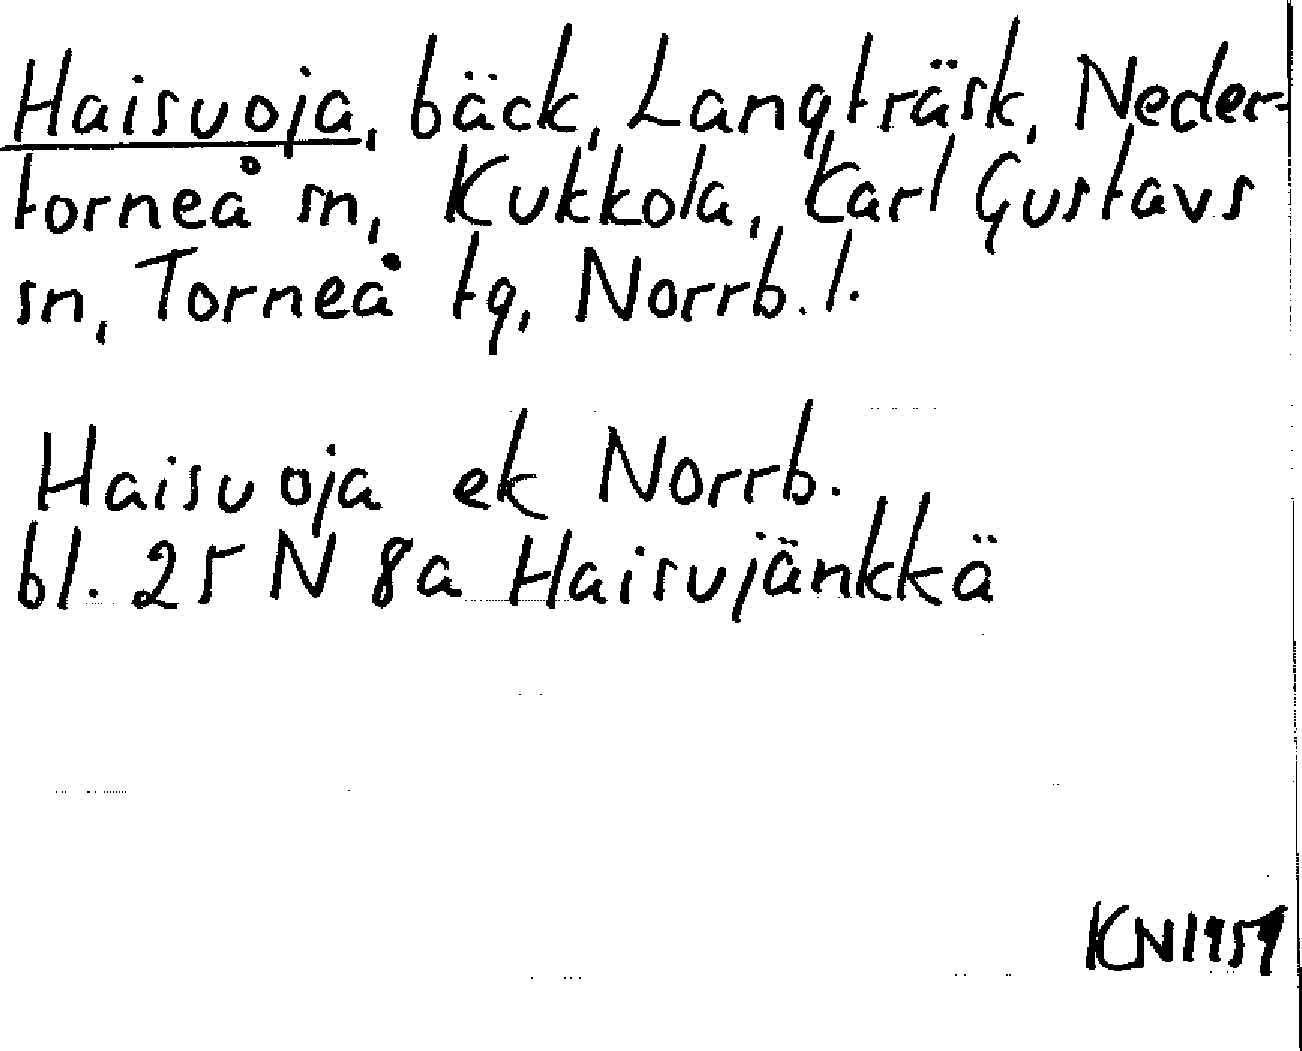 Haisuoja, bäck, Langträsk, Neder-
torneå sn, Kukkola, Karl Gustavs
sn, Torneå tg, Norrb. l.
Haisuoja ek Norrb.
bl. 25 N 8a Haisujänkkä